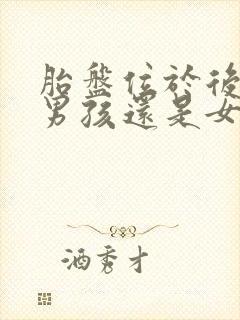 胎盤位於後
男孩還是女
酒秀才